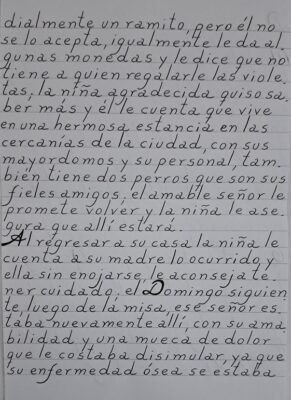 dialmente un ramito, pero él no
se lo acepta, igualmente le da al
gunas monedas y le dice que no
tiene a quien regalarle las viole
tas, la niña agradecida quiso sa
ber más y él le cuenta que vive
en una hermosa estancia en las
cercanías de la ciudad, con sus
mayordomos y su personal, tam
bién tiene dos perros que son sus
fieles amigos, el amable señor le
promete volver y la niña le ase
gura que allí estará.
Al regresar a su casa la niña le
cuenta a su madre lo ocurrido y
ella sin enojarse, le aconseja te
ner cuidado; el Domingo siguien
te, luego de la misa, ese señor es
taba nuevamente allí, con su ama
bilidad y una mueca de dolor
que le costaba disimular, ya que
su enfermedad ósea se estaba